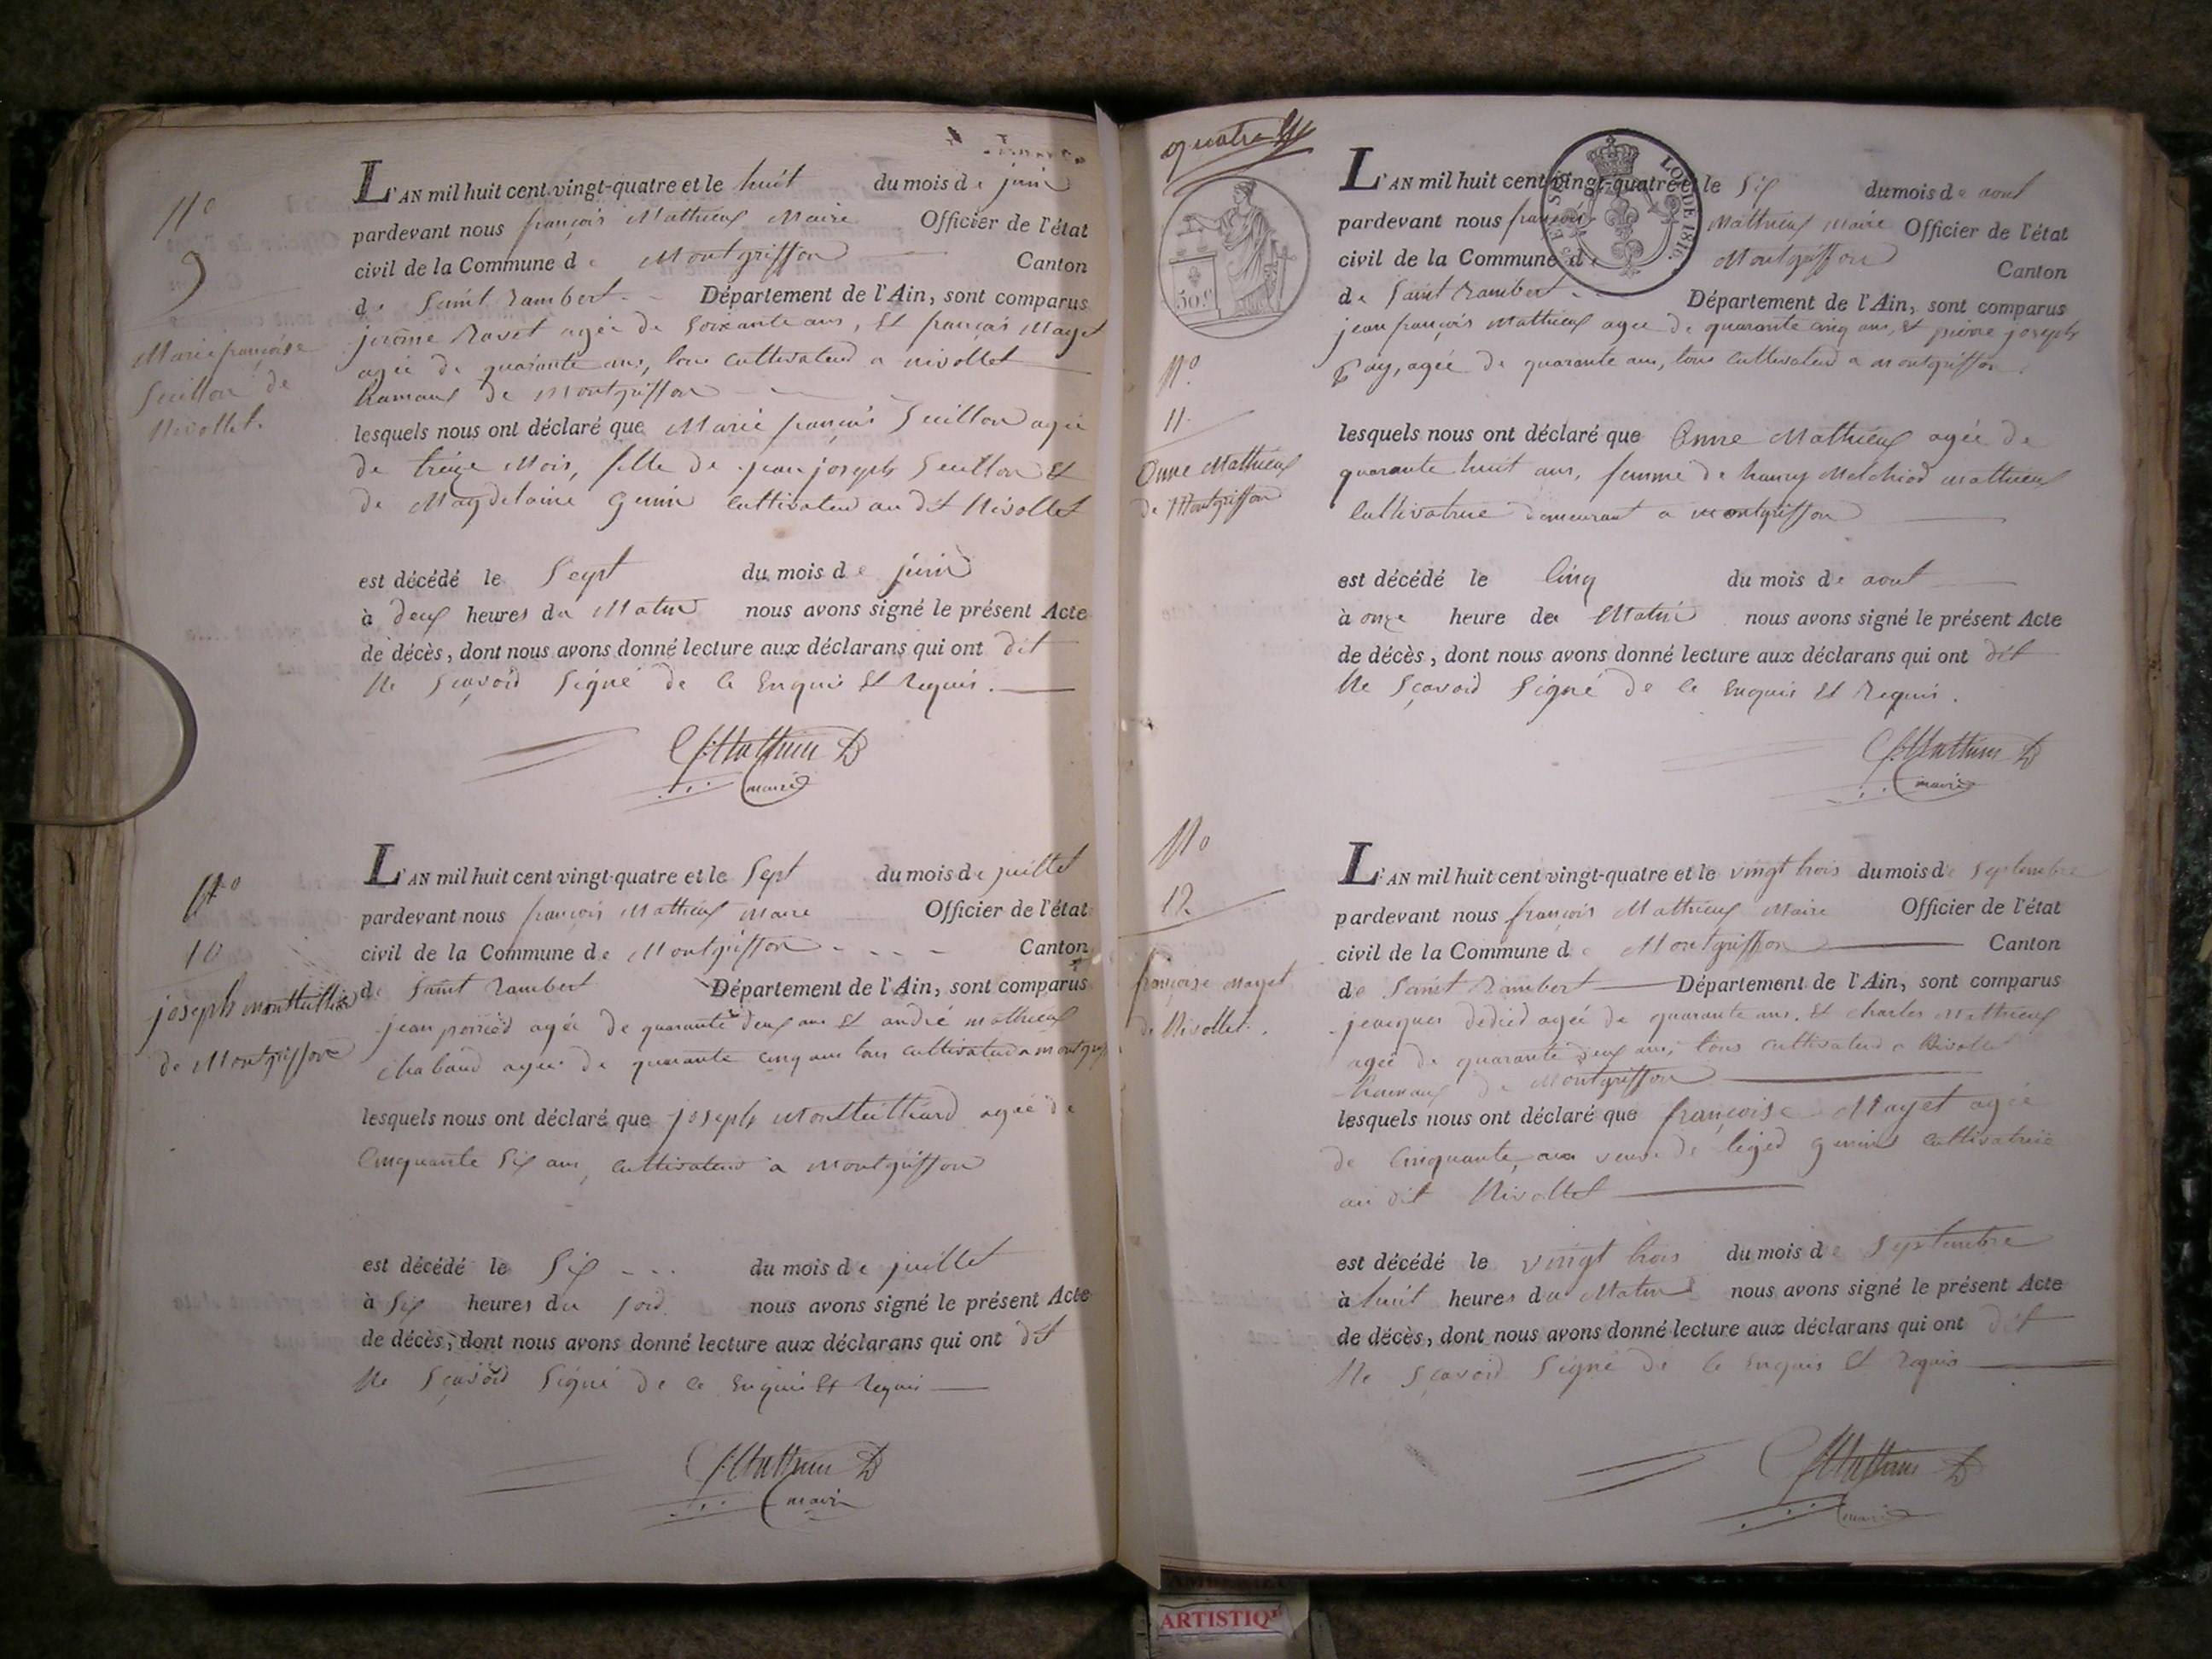 N.o
9
Marie françoise
Guillon de
Nivollet.
L'AN mil huit cent vingt-quatre et le huit du mois de juin
pardevant nous françois Mathieux Maire Officier de l'état
civil de la Commune de Montgriffon Canton
de Saint Rambert Département de l'Ain, sont comparus
jerôme Ravet agée de soixante ans, et françois Mayet
agée de quarante ans, tous cultivateur a nivollet
hamaux de Montgriffon
lesquels nous ont déclaré que Marie françois Guillon agée
de treize Mois, fille de jean joseph Guillon et
de Magdelaine Genin cultivateur au dit Nivollet
est décédé le Sept du mois de juin
à deux heures du Matin nous avons signé le présent Acte
de décès, dont nous avons donné lecture aux déclarans qui ont dit
Ne Sçavoir Signé de ce Enquis et Requis.
Mathieu
maire
N.o
10
joseph
de Montgriffon
L'AN mil huit cent vingt-quatre et le Sept du mois de juillet
pardevant nous françois Mathieux Maire Officier de l'état
civil de la Commune de Montgriffon Canton
de Saint Rambert Département de l'Ain, sont comparus
jean agée de quarante deux ans et andré mathieux
chabaud agée de quarante cinq ans tous cultivateur a
lesquels nous ont déclaré que joseph agée de
Cinquante Six ans, cultivateur a Montgriffon
est décédé le Six du mois de juillet
à Six heures du soir nous avons signé le présent Acte
de décès, dont nous avons donné lecture aux déclarans qui ont dit
Ne Sçavoir Signé de ce Enquis et Requis
Mathieu
maire
quatre
50 c
LOI DE 1816
N.o
11.
Anne Mathieux
de Montgriffon
L'AN mil huit cent vingt-quatre et le Six du mois de aout
pardevant nous françois Mathieux Maire Officier de l'état
civil de la Commune de Montgriffon Canton
de Saint Rambert Département de l'Ain, sont comparus
jean françois Mathieux agée de quarante cinq ans, et pierre joseph
Pay, agée de quarante ans, tous cultivateur a montgriffon.
lesquels nous ont déclaré que Anne Mathieux agée de
quarante huit ans, femme de hanry Melchiod Mathieux
Cultivatrice demeurant a montgriffon
est décédé le Cinq du mois de aout
à onze heure du Matin nous avons signé le présent Acte
de décès, dont nous avons donné lecture aux déclarans qui ont dit
Ne Sçavoir Signé de ce Enquis et Requis.
Mathieu
maire
N.o
12
françoise Mayet
de Nivollet.
L'AN mil huit cent vingt-quatre et le vingt trois du mois de Septembre
pardevant nous françois Mathieux Maire Officier de l'état
civil de la Commune de Montgriffon Canton
de Saint Rambert Département de l'Ain, sont comparus
jeacques agée de quarante ans, et charles Mathieux
agée de quarante deux ans, tous cultivateur a Nivollet
hamaux de Montgriffon
lesquels nous ont déclaré que françoise Mayet agée
de Cinquante ans veuve de Genin Cultivatrice
au dit Nivollet
est décédé le vingt trois du mois de Septembre
à huit heures du Matin nous avons signé le présent Acte
de décès, dont nous avons donné lecture aux déclarans qui ont dit
Ne Sçavoir Signé de ce Enquis et Requis
Mathieu
maire
ARTISTIQ